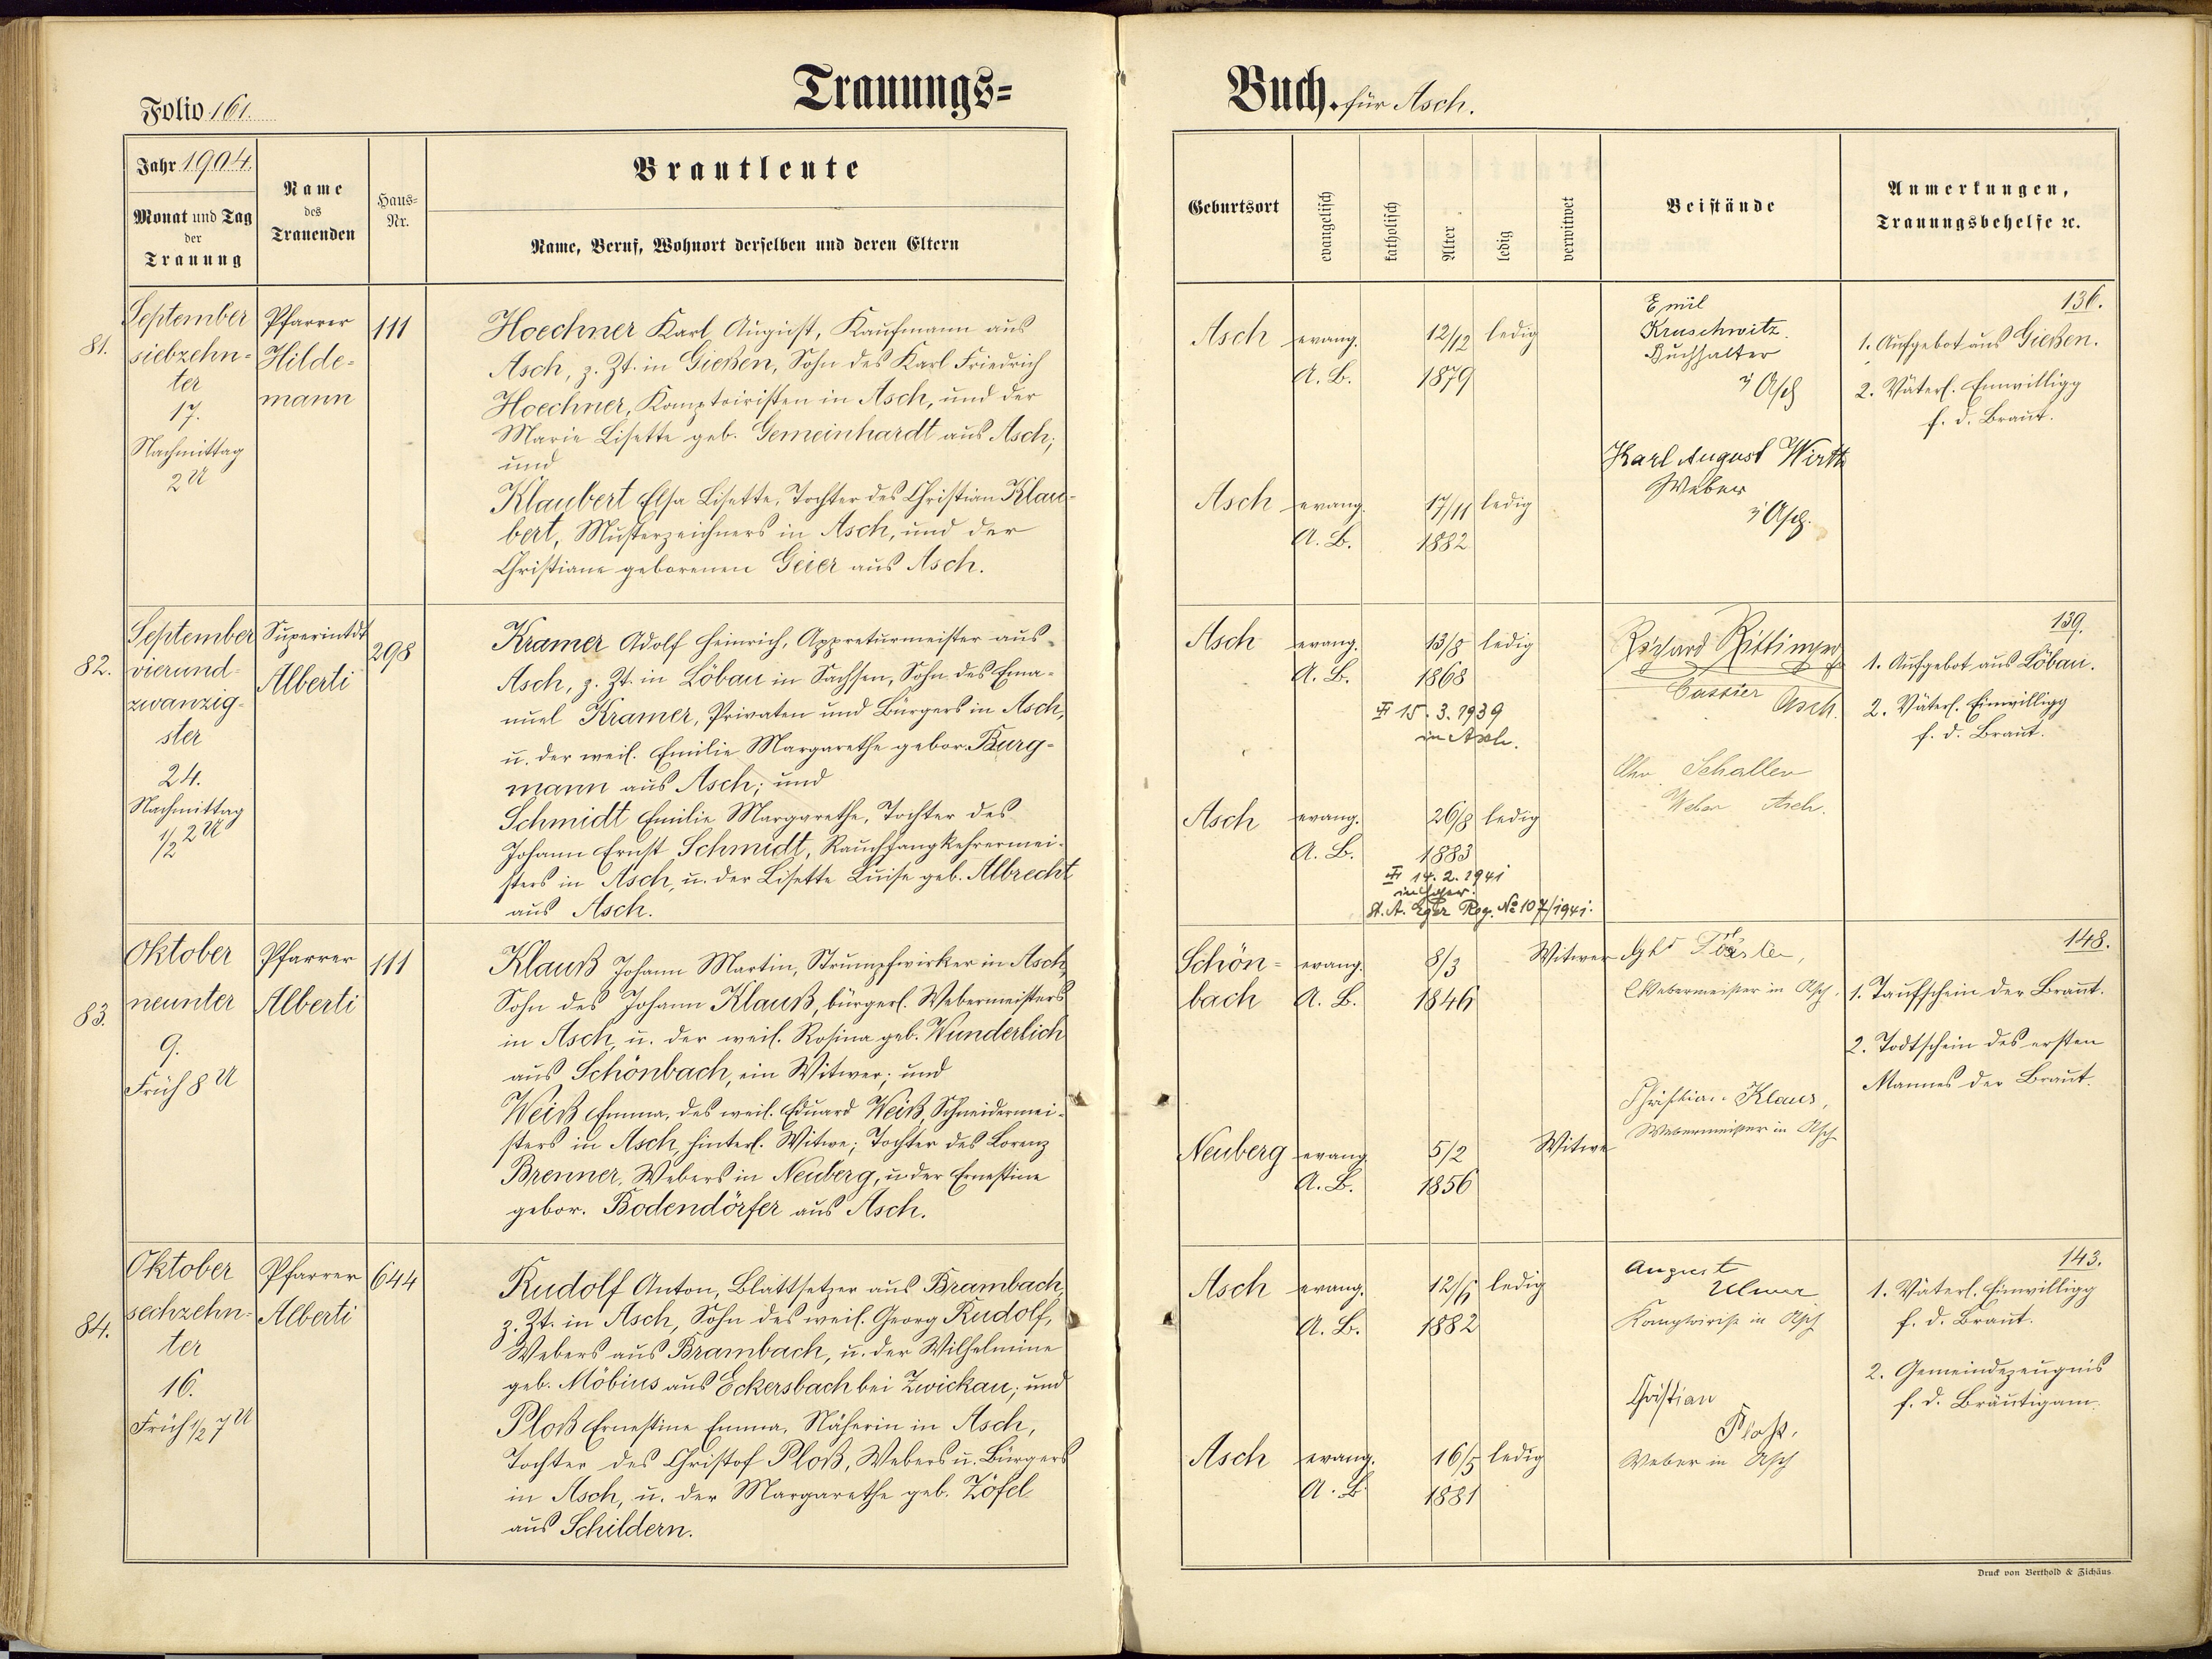 Folio 161.
Trauungs=
Jahr 1904.
Monat und Tag
der
Trauung
Name
des
Trauenden
Haus=
Nr.
Brautleute
Name, Beruf, Wohnort derselben und deren Eltern
81.
September
siebzehn=
ter
17.
Nachmittag
2 U
Pfarrer
Hilde=
mann
111
Hoechner Karl August, Kaufmann aus
Asch, z. Zt. in Gießen, Sohn des Karl Friedrich
Hoechner, Komptoiristen in Asch, und der
Marie Lisette geb. Gemeinhardt aus Asch;
und
Klaubert Elsa Lisette, Tochter des Christian Klau=
bert, Musterzeichners in Asch, und der
Christiane geborenen Geier aus Asch.
82.
September
vierund=
zwanzig=
ster
24.
Nachmittag
1/2 2 U
Superintdt
Alberti
298
Kramer Adolf Heinrich, Appreturmeister aus
Asch, z. Zt. in Löbau in Sachsen, Sohn des Ema=
nuel Kramer, Privaten und Bürgers in Asch,
u. der weil. Emilie Margarethe gebor. Burg=
mann aus Asch; und
Schmidt Emilie Margarethe, Tochter des
Johann Ernst Schmidt, Rauchfangkehrermei=
sters in Asch, u. der Lisette Luise geb. Albrecht
aus Asch.
83.
Oktober
neunter
9.
Früh 8 U
Pfarrer
Alberti
111
Klauß Johann Martin, Strumpfwirker in Asch,
Sohn des Johann Klauß, bürgerl. Webermeisters
in Asch, u. der weil. Rosina geb. Wunderlich
aus Schönbach, ein Witwer; und
Weiß Emma, des weil. Eduard Weiß, Schneidermei=
sters in Asch, hinterl. Witwe; Tochter des Lorenz
Brenner, Webers in Neuberg, u. der Ernestine
gebor. Bodendörfer aus Asch.
84.
Oktober
sechzehn=
ter
16.
Früh 1/2 7 U
Pfarrer
Alberti
644
Rudolf Anton, Blattsetzer aus Brambach,
z. Zt. in Asch, Sohn des weil. Georg Rudolf,
Webers aus Brambach, u. der Wilhelmine
geb. Möbius aus Eckersbach bei Zwickau; und
Ploß Ernestine Emma, Näherin in Asch,
Tochter des Christof Ploß, Webers u. Bürgers
in Asch, u. der Margarethe geb. Zöfel
aus Schildern.
Buch. für Asch.
Geburtsort
evangelisch
katholisch
Alter
ledig
verwitwet
Beistände
Anmerkungen,
Trauungsbehelfe ꝛc.
Asch evang. 12/12 ledig
A. B. 1879
Asch evang. 17/11 ledig
A. B. 1882
Emil
Kruschwitz
Buchhalter
i Asch
Karl August Wirth
Weber
i Asch.
136.
1. Aufgebot aus Gießen.
2. Väterl. Einwilligg
f. d. Braut.
Asch evang. 13/8 ledig
A. B. 1868
15. 3. 1939
in Asch.
Asch evang. 26/8 ledig
A. B. 1883
14. 2. 1941
in Eger.
St. A. Eger Reg. No 107/1941.
Richard Rittinger
Cassier Asch.
Chr. Schaller
Weber Asch.
139.
1. Aufgebot aus Löbau.
2. Väterl. Einwilligg
f. d. Braut.
Schön= evang. 8/3 Witwer
bach A. B. 1846
Neuberg evang. 5/2 Witwe
A. B. 1856
Webermeister in Asch.
Christian Klaus,
Webermeister in Asch
148.
1. Taufschein der Braut.
2. Todtschein des ersten
Mannes der Braut.
Asch evang. 12/6 ledig
A. B. 1882
Asch evang. 16/5 ledig
A. B. 1881
August
Ulmer
Komptoirist in Asch
Christian
Ploß.
Weber in Asch
143.
1. Väterl. Einwilligg
f. d. Braut.
2. Gemeindezeugnis
f. d. Bräutigam.
Druck von Berthold & Zichäus